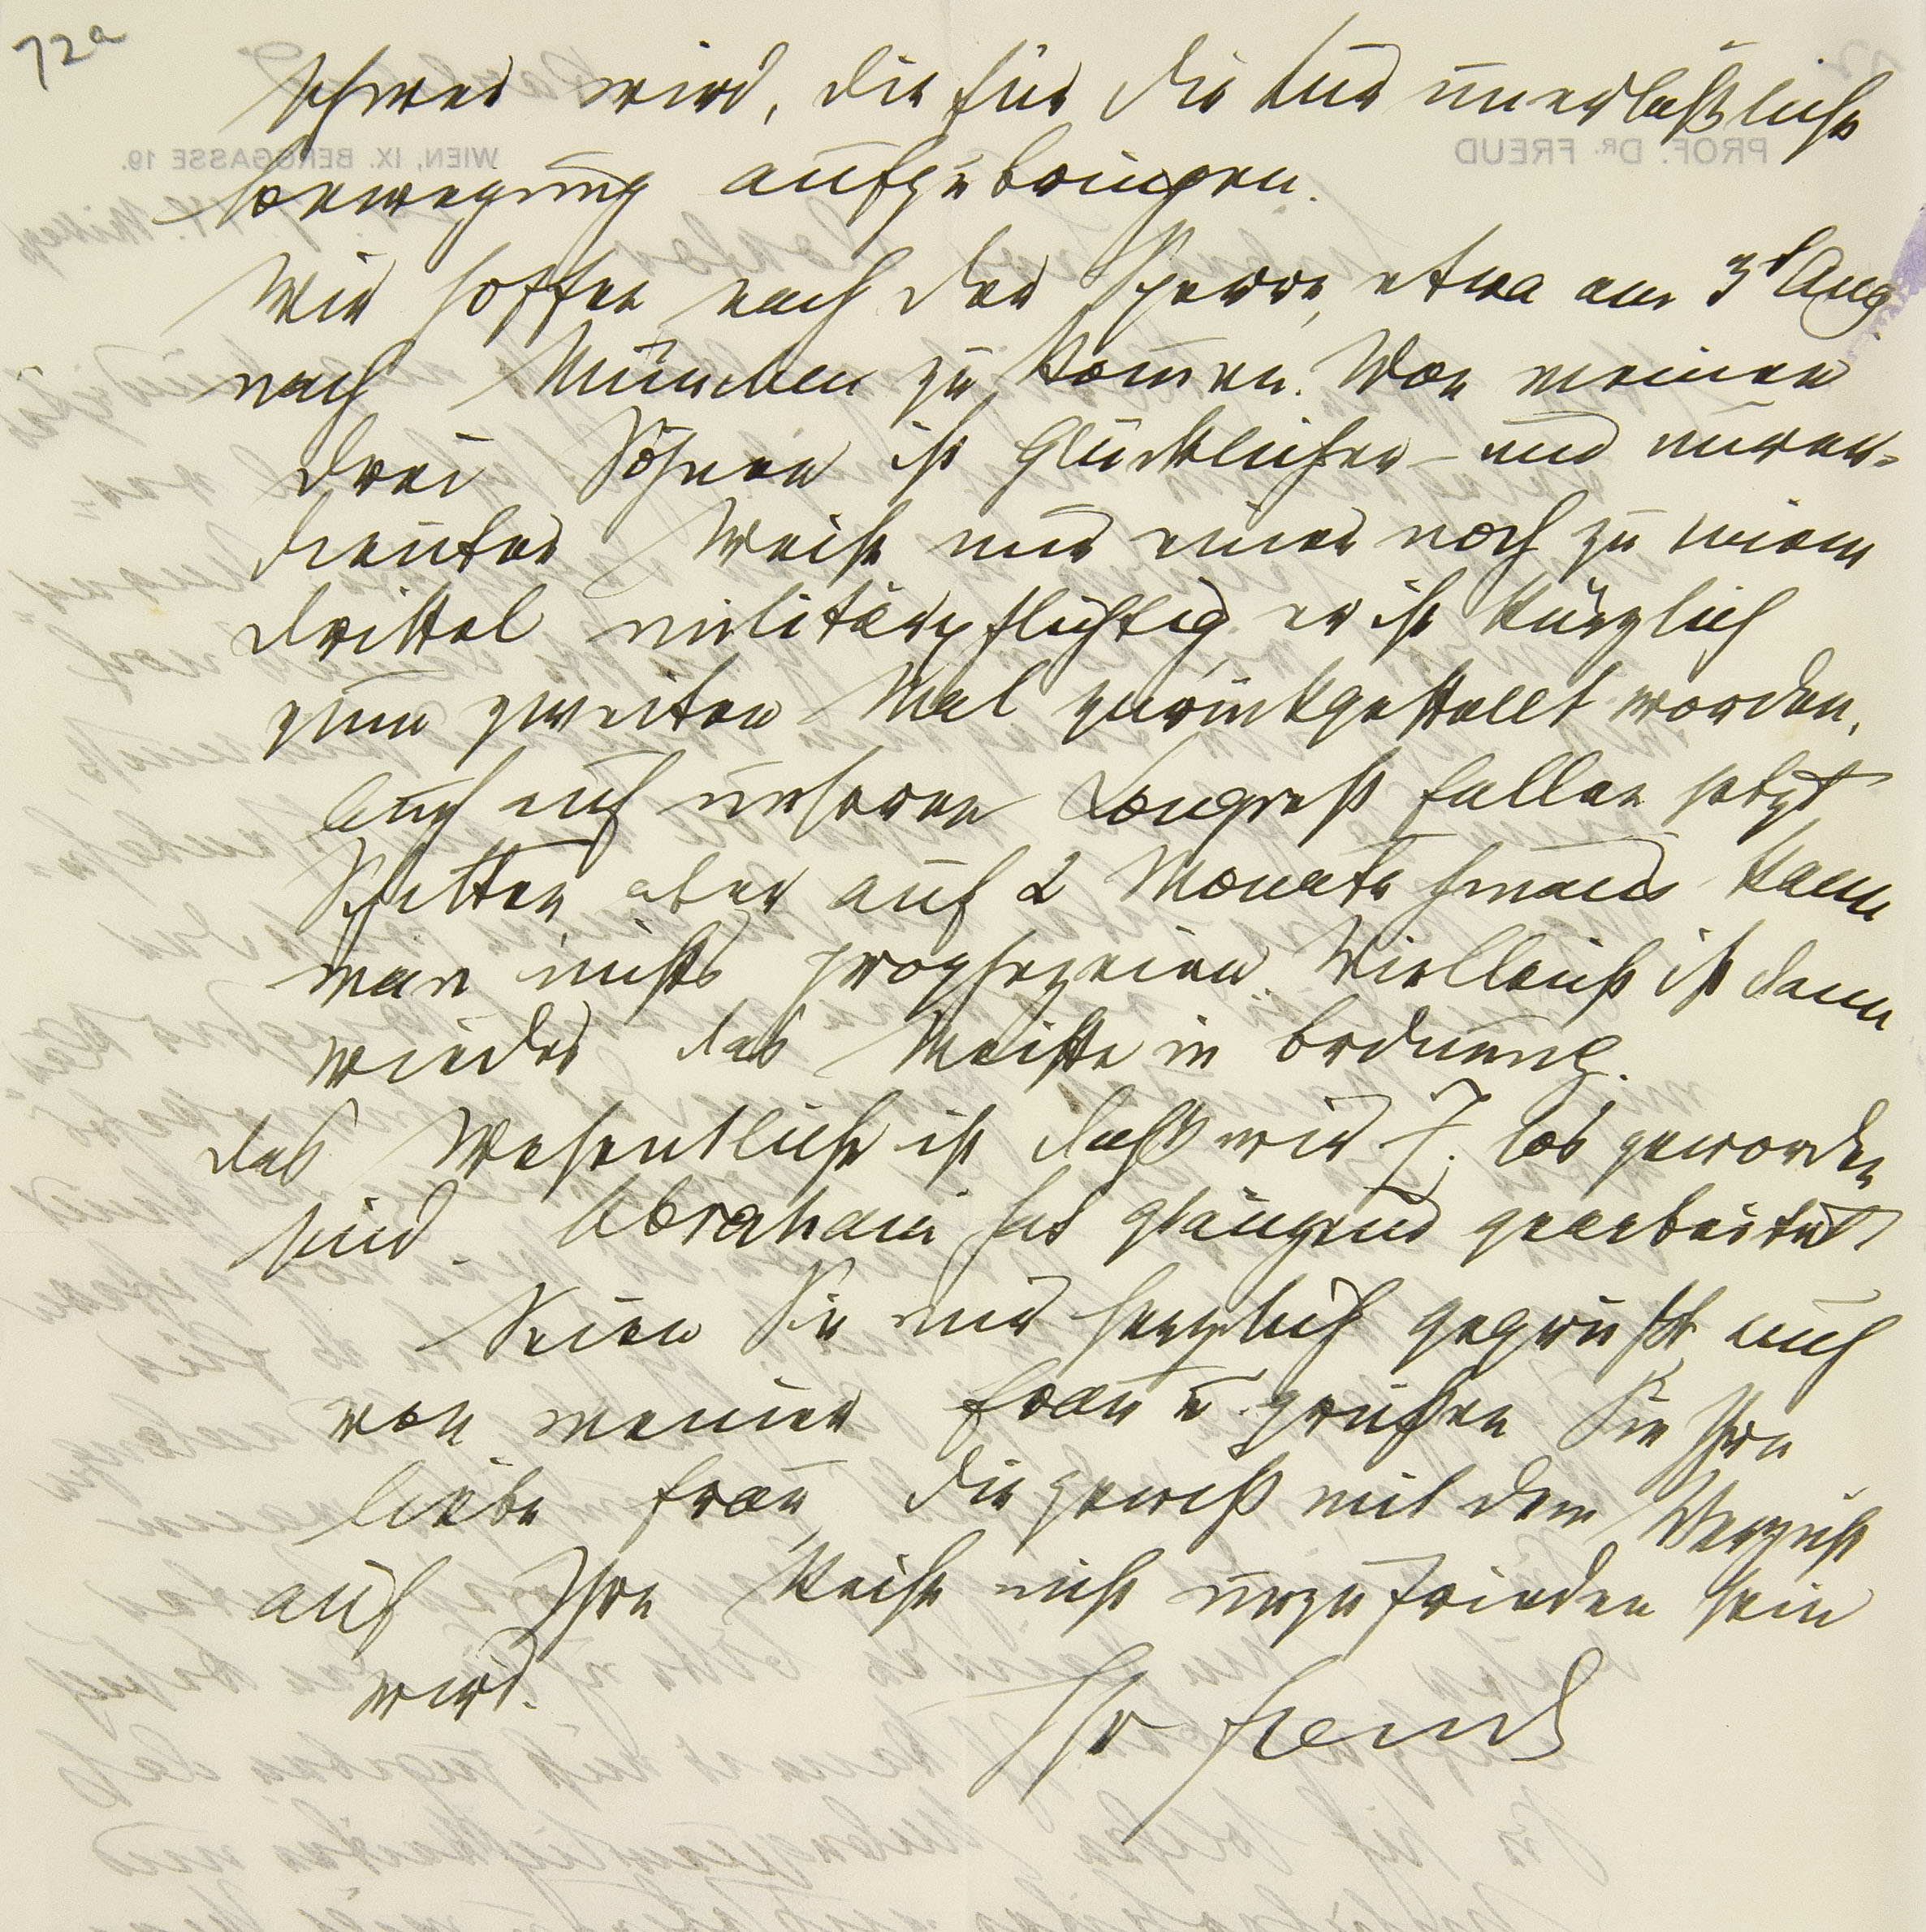 72a
schwer wird, die für die Kur unerläßliche
Bewegung aufzubringen.
Wir hoffen nach der Sperre, etwa am 3t Aug
nach München zu kommen. Von meinen
drei Söhnen ist glücklicher- und unver-
dienter Weise nur einer noch zu einem
Drittel militärpflichtig, er ist kürzlich
zum zweiten Mal zurückgestellt worden.
Auch auf unseren Congreß fallen jetzt
Schatten aber auf 2 Monate hinaus kann
man nichts prophezeien. Vielleicht ist dann
wieder das Meiste in Ordnung.
Das Wesentliche ist daß wir J. los geworden
sind. Abraham hat glänzend gearbeitet
Seien Sie nur herzlich gegrüßt auch
von meiner Frau u grüßen Sie Ihre
liebe Frau, die gewiß mit dem Verzicht
auf Ihre Reise nicht unzufrieden sein
wird.
Ihr Freud
PROF. DR. FREUD
WIEN, IX. BERGGASSE 19.